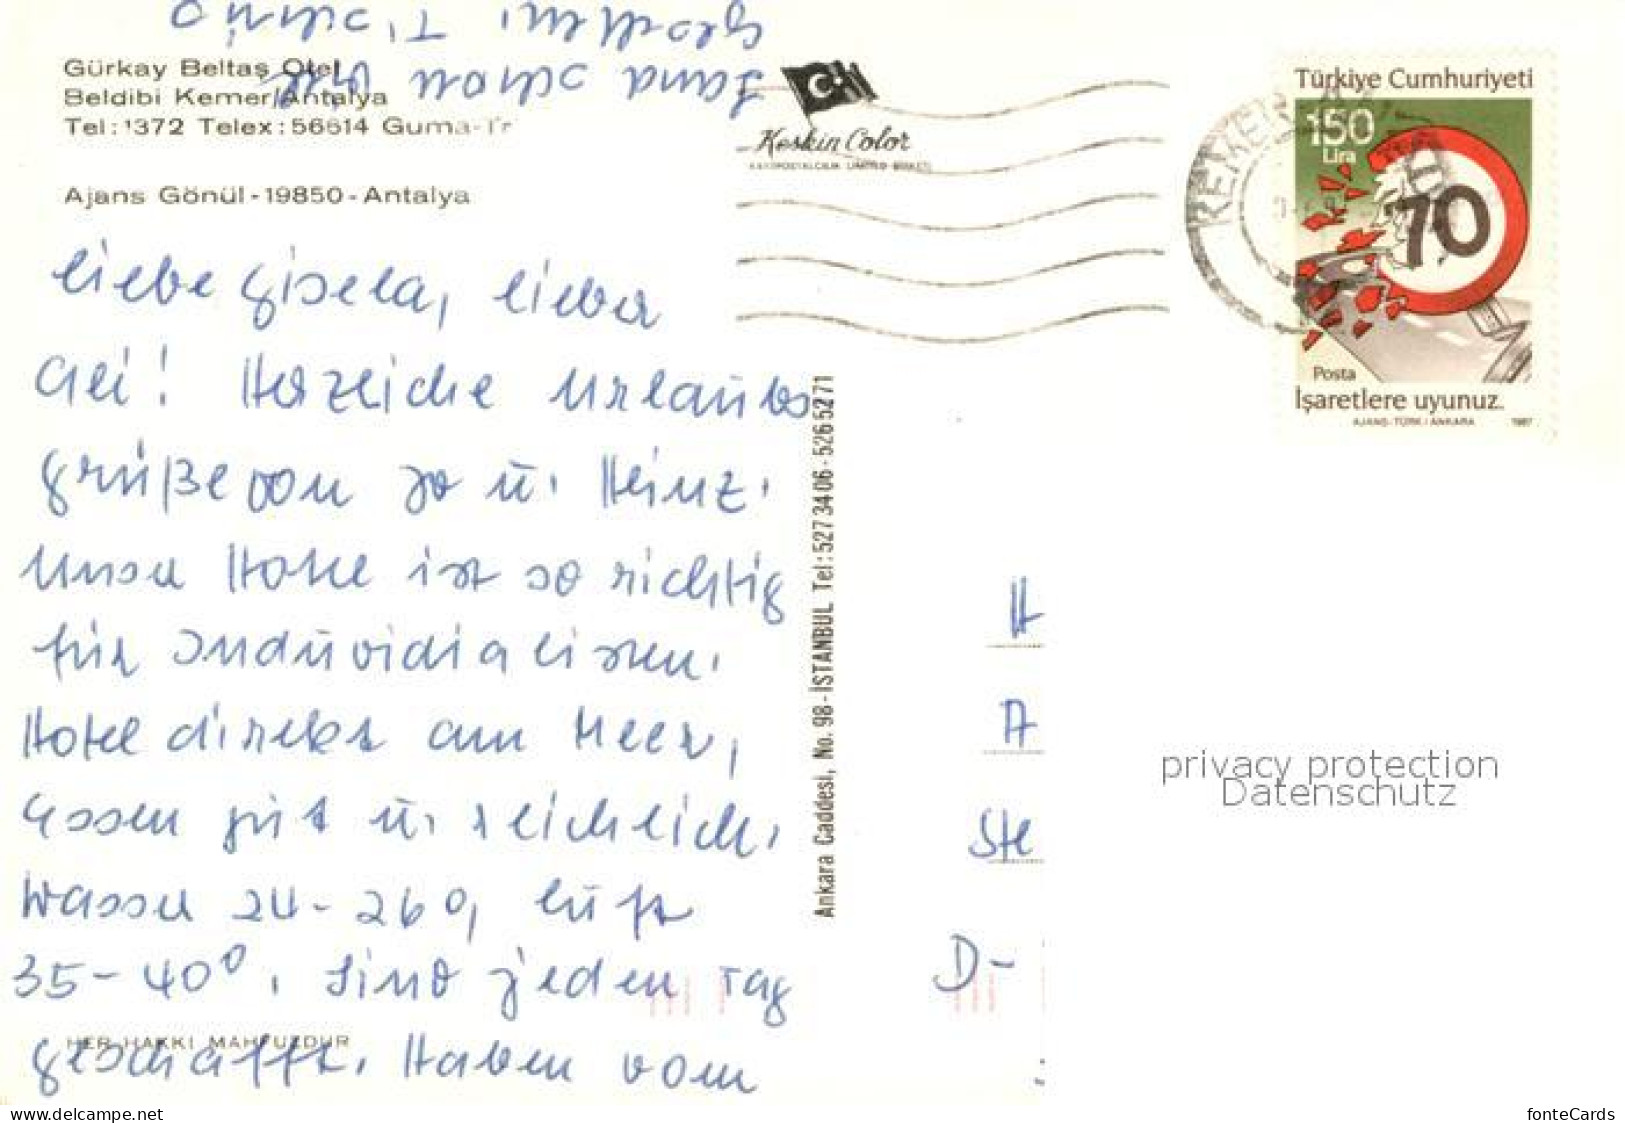 Gürkay Beltaş Otel
Beldibi Kemer/Antalya
Tel: 1372 Telex: 56614 Guma-Tr
Ajans Gönül - 19850 - Antalya
Keskin Color
KEMER
Türkiye Cumhuriyeti
150
Lira
70
Posta
İşaretlere uyunuz.
AJANS-TÜRK / ANKARA 1987
liebe Gisela, lieber
Gei! Herzliche Urlaubs
grüße von Jo u. Heinz.
Unser Hotel ist so richtig
für Indüvidialisten.
Hotel direkt am Meer,
Essen gut u. reichlich.
Wasser 24-26°, Luft
35-40°. Sind jeden Tag
geschafft. Haben vom
HER HAKKI MAHFUZDUR
Ankara Caddesi, No. 98 - İSTANBUL Tel: 527 34 06 - 526 52 71
H
A
Ste
D-
privacy protection
Datenschutz
www.delcampe.net
fonteCards